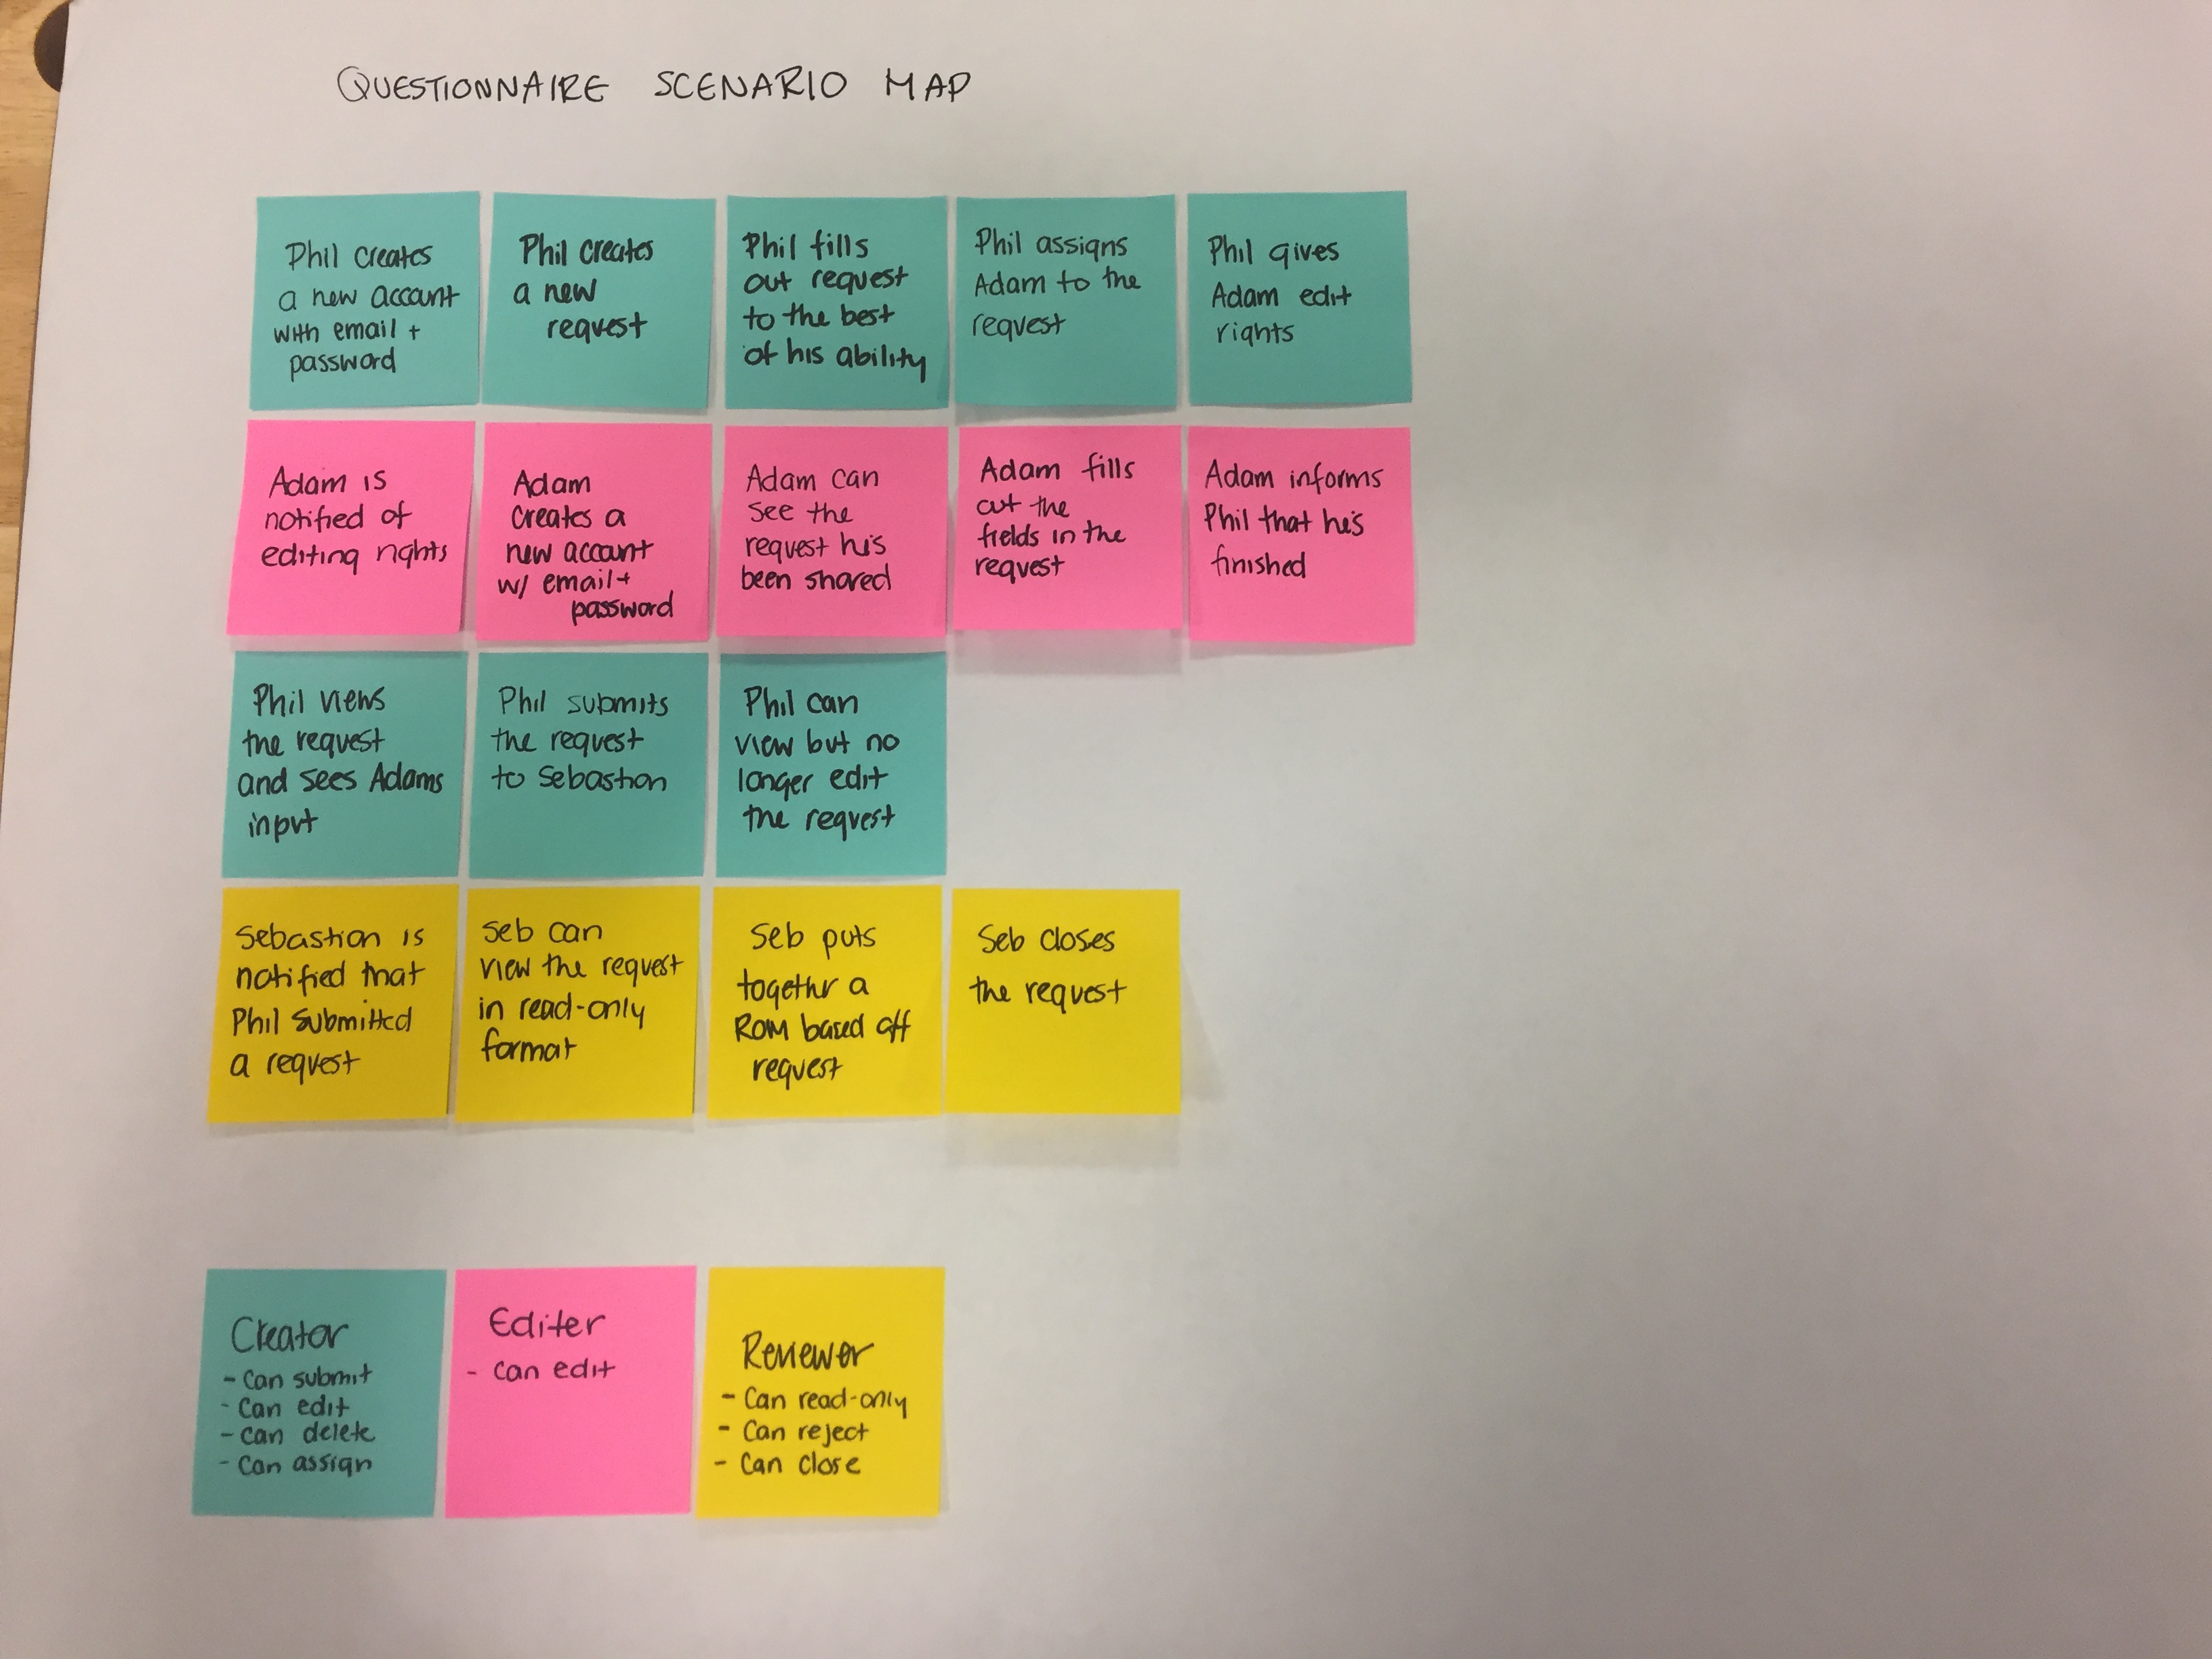 QUESTIONNAIRE SCENARIO MAP
Phil creates
a new account
with email +
password
Phil creates
a new
request
Phil fills
out request
to the best
of his ability
Phil assigns
Adam to the
request
Phil gives
Adam edit
rights
Adam is
notified of
editing rights
Adam
creates a
new account
w/ email +
password
Adam can
see the
request he's
been shared
Adam fills
out the
fields in the
request
Adam informs
Phil that he's
finished
Phil views
the request
and sees Adams
input
Phil submits
the request
to Sebastion
Phil can
view but no
longer edit
the request
Sebastion is
notified that
Phil submitted
a request
Seb can
view the request
in read-only
format
Seb puts
togethr a
ROM based off
request
Seb closes
the request
Creator
- Can submit
- Can edit
- Can delete
- Can assign
Editer
- Can edit
Reviewer
- Can read-only
- Can reject
- Can close